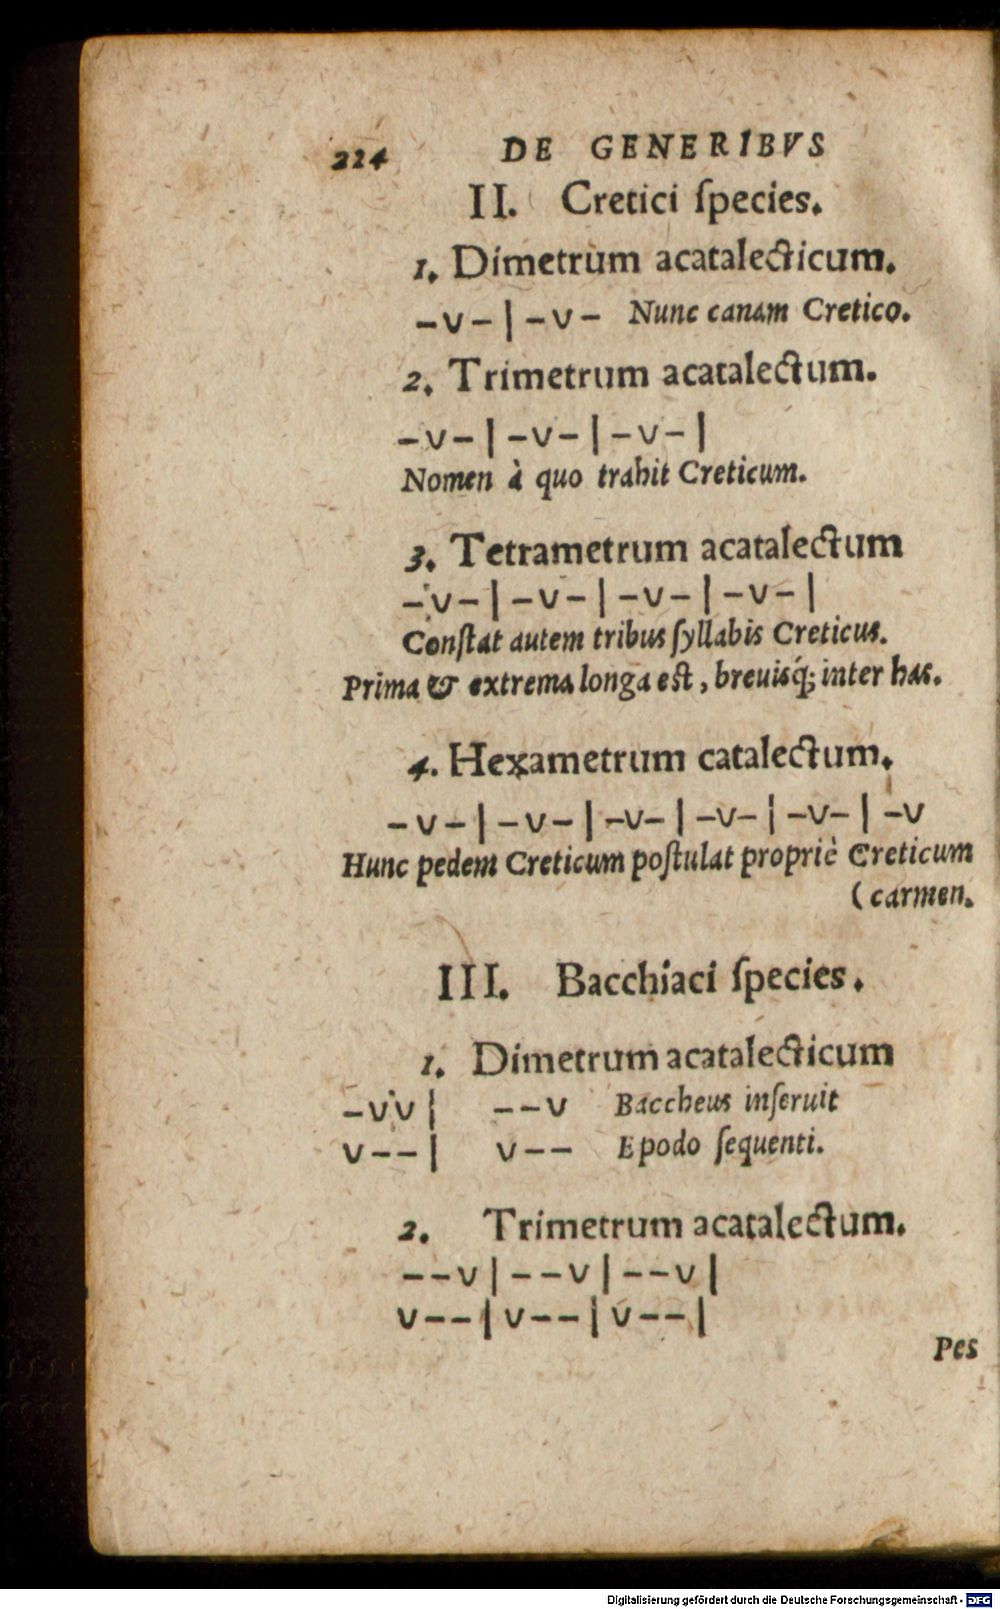 224 DE GENERIBVS
II. Cretici ſpecies.
1. Dimetrum acatalecticum.
–v–|–v– Nunc canam Cretico.
2. Trimetrum acatalectum.
–v–|–v–|–v–|
Nomen à quo trahit Creticum.
3. Tetrametrum acatalectum
–v–|–v–|–v–|–v–|
Conſtat autem tribus ſyllabis Creticus.
Prima & extrema longa est, breuisq́; inter has.
4. Hexametrum catalectum.
–v–|–v–|–v–|–v–|–v–|–v
Hunc pedem Creticum poſtulat propriè Creticum
(carmen.
III. Bacchiaci ſpecies.
1. Dimetrum acatalecticum
–vv| ––v Baccheus inſeruit
v––| v–– Epodo ſequenti.
2. Trimetrum acatalectum.
––v|––v|––v|
v––|v––|v––|
Pes
Digitalisierung gefördert durch die Deutsche Forschungsgemeinschaft - DFG